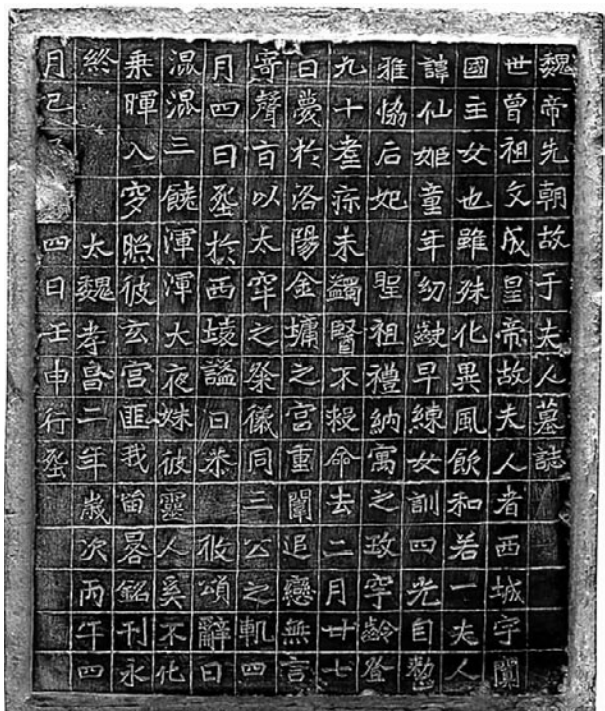 魏帝先朝故于夫人墓誌
世曾祖文成皇帝故夫人者西城宇闐
國主女也雖殊化異風飲和若一夫人
諱仙姬童年幼齔早練女訓四光自整
雅恊后妃 聖祖禮納寓之玫宇齡登
九十耋疹未蠲醫不救命去二月廿七
日薨於洛陽金墉之宮重闈追戀無言
寄聲旨以太牢之祭儀同三公之軌四
月四日塟於西陵謚曰恭 攸頌辭曰
混混三饒渾渾大夜姝彼靈人奚不化
乘暉入穸照彼玄宮匪我留晷銘刊永
終 大魏孝昌二年歲次丙午四
月己 四日壬申行塟